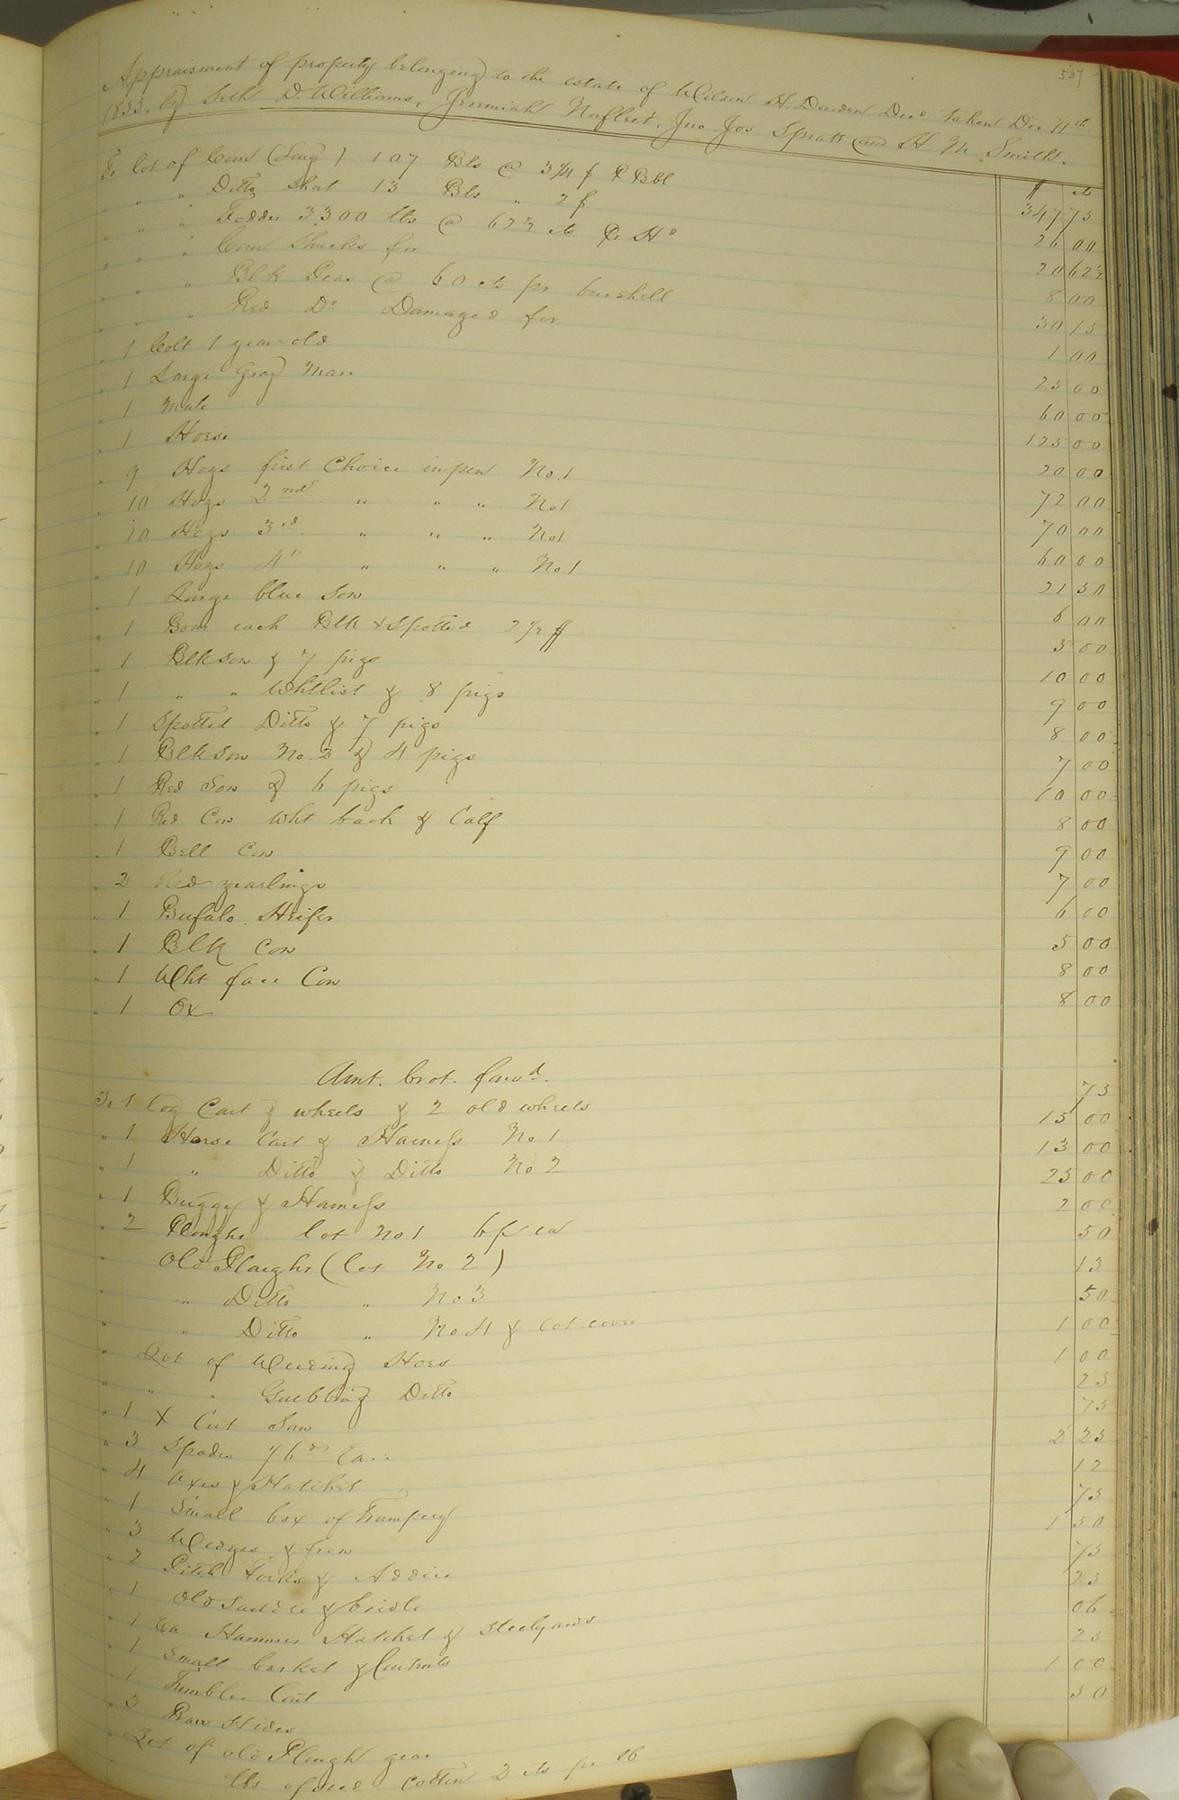 537
Appraisment of property belonging to the estate of Wilson H. Dowden Decd taken Dec 11th
1855. by Seth D. Williams, Jeremiah Norfleet. Jno. Jos Spratt and H M Smith.
$ cts
To lot of Corn (Long) 107 Bls @ 3 1/4 $ P Bbl 347 75
" " " Ditto Shat 13 Bls " 2 $ 26 00
" " " Fodder 3300 lbs @ 62½ cts Pr Hd 20 62½
" " " Corn Shucks for 8 00
" " " Blk Peas @ 60 cts pr bushell 30 15
" " " Red Do Damaged for 1 00
" 1 Colt 1 year old 25 00
" 1 Large Gray Mare 60 00
" 1 Mule 125 00
" 1 Horse 20 00
" 9 Hogs first Choice in pen No. 1 72 00
" 10 Hogs 2nd " " " No 1 70 00
" 10 Hogs 3rd " " " No 1 60 00
" 10 Hogs 4th " " " No 1 21 50
" 1 Large blue Sow 6 00
" 1 Boar each Blk & Spotted 2 1/2 $ 5 00
" 1 Blk Sow & 7 pigs 10 00
" 1 " " Whtlist & 8 pigs 9 00
" 1 Spotted Ditto & 7 pigs 8 00
" 1 Blk Sow No. 2 & 4 pigs 7 00
" 1 Red Sow & 6 pigs 10 00
" 1 Red Cow Wht back & Calf 8 00
" 1 Bell Cow 9 00
" 2 Red yearlings 7 00
" 1 Bufalo Heifer 6 00
" 1 Blk Cow 5 00
" 1 Wht face Cow 8 00
" 1 Ox 8 00
Amt. brot. forwd.
To 1 Log Cart & wheels & 2 old wheels 75
" 1 Horse Cart & Harness No 1 15 00
" 1 " Ditto & Ditto No 2 13 00
" 1 Buggy & Harness 25 00
" 2 Ploughs lot No 1 2 00
" Old Ploughs (lot No 2) 50
" " Ditto " No 3 13
" " Ditto " No 4 & lot 50
" Lot of Weeding Hoes 1 00
" " " Grubbing Ditto 1 00
" 1 X Cut Saw 25
" 3 Spades 75
" 4 Axes & Hatchet 2 25
" 1 Small box of Trumpery 12
" 3 Wedges & frow 75
" 2 Pitch Forks & Addice 1 50
" 1 Old Saddle & bridle 75
" 1 Ea Hammer Hatchet & Steelyards 25
" 1 Small basket & Contents 06
" 1 Tumbler Cart 25
" 3 Raw Hides 1 00
" Lot of old Plough gear 50
lbs of seed Cotton 2 cts pr lb